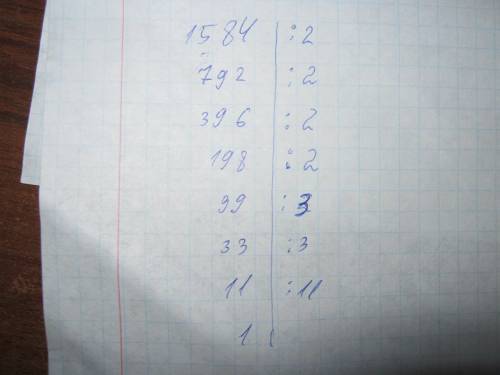 1584 | :2
792 | :2
396 | :2
198 | :2
99 | :3
33 | :3
11 | :11
1 |